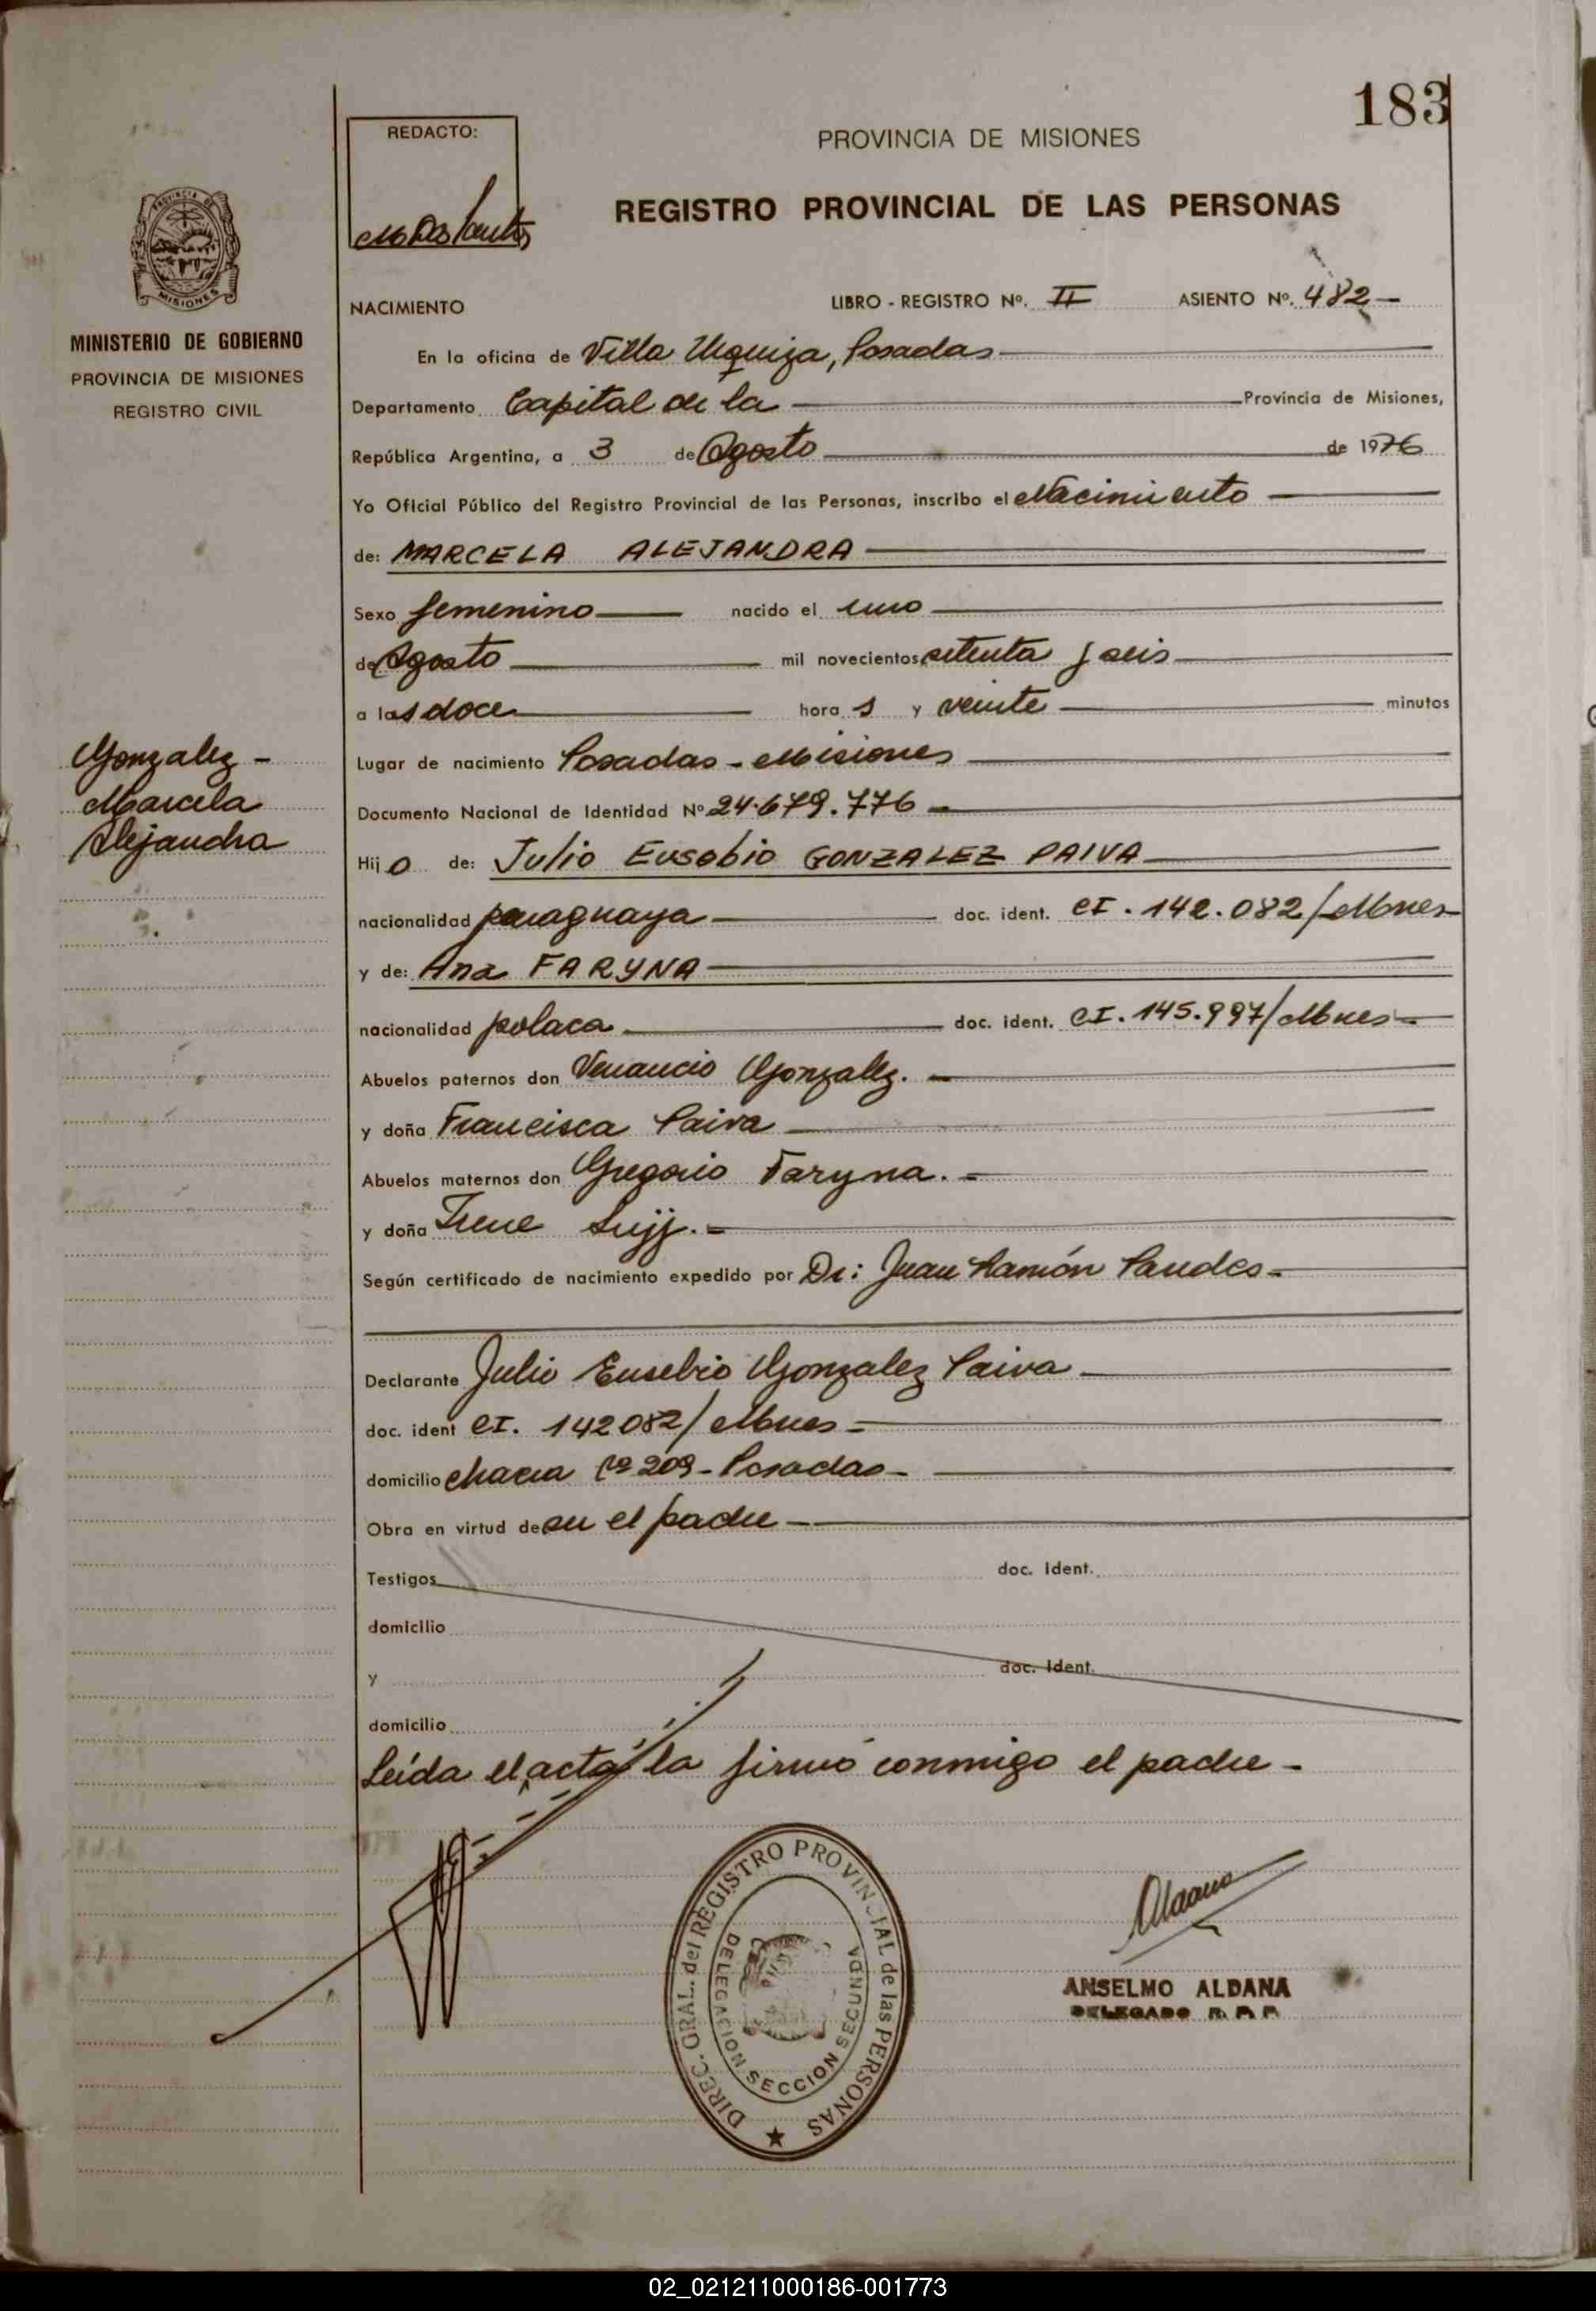 183
REDACTO:
PROVINCIA DE MISIONES
REGISTRO PROVINCIAL DE LAS PERSONAS
PROVINCIA DE MISIONES
MINISTERIO DE GOBIERNO
PROVINCIA DE MISIONES
REGISTRO CIVIL
NACIMIENTO LIBRO - REGISTRO Nº. II ASIENTO Nº. 482
En la oficina de Villa Urquiza, Posadas
Departamento Capital de la Provincia de Misiones,
República Argentina, a 3 de Agosto de 1976
Yo Oficial Público del Registro Provincial de las Personas, inscribo el Nacimiento
de: MARCELA ALEJANDRA
Sexo femenino nacido el uno
de Agosto mil novecientos setenta y seis
a las doce hora s y veinte minutos
Gonzalez -
Marcela
Alejandra
Lugar de nacimiento Posadas - Misiones
Documento Nacional de Identidad Nº 24.679.776
Hij o de: Julio Eusebio GONZALEZ PAIVA
nacionalidad paraguaya doc. ident. CI. 142.082/Mnes
y de: Ana FARYNA
nacionalidad polaca doc. ident. CI. 145.997/Mnes
Abuelos paternos don Venancio Gonzalez.
y doña Francisca Paiva
Abuelos maternos don Gregorio Faryna.
y doña Irene
Según certificado de nacimiento expedido por Dr: Juan Ramón
Declarante Julio Eusebio Gonzalez Paiva
doc. ident CI. 142082/Mnes
domicilio chacra Nº 209 - Posadas
Obra en virtud de ser el padre
Testigos doc. ident.
domicilio
y doc. ident.
domicilio
Leída el acta la firmó conmigo el padre -
DIREC. GRAL. del REGISTRO PROVINCIAL de las PERSONAS
DELEGACION SECCION SEGUNDA
Aldana
ANSELMO ALDANA
DELEGADO R. P. P.
02_021211000186-001773